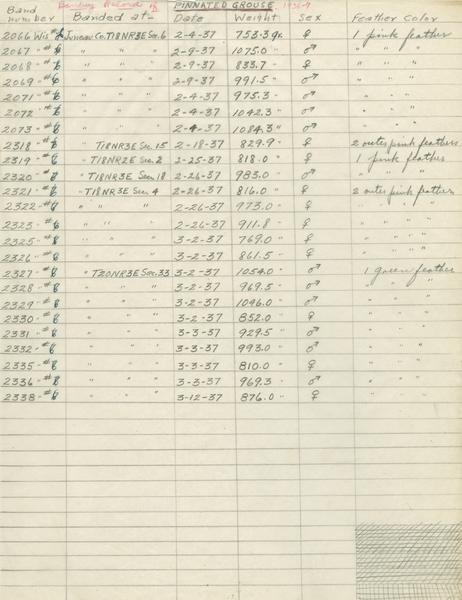 Banding Record of PINNATED GROUSE 1936-7
Band number Banded at- Date Weight Sex Feather Color
2066 Wis # Juneau Co. T18NR3E Sec. 6 2-4-37 753.3 gr. ♀ 1 pink feather
2067 - # " " " 2-9-37 1075.0 " ♂ " " "
2068 - # " " " 2-9-37 833.7 " ♀ " " "
2069 - # " " " 2-9-37 991.5 " ♂ " " "
2071 - # " " " 2-4-37 975.3 " ♂ " " "
2072 - # " " " 2-4-37 1042.3 " ♂ " " "
2073 - # " " " 2-4-37 1084.3 " ♂ " " "
2318 - # " T18NR3E Sec. 15 2-18-37 829.9 " ♀ 2 outer pink feathers
2319 - # " T18NR2E Sec. 2 2-25-37 818.0 " ♀ 1 pink feather
2320 - # " T18NR3E Sec. 18 2-26-37 983.0 " ♂ " " "
2321 - # " T18NR3E Sec. 4 2-26-37 816.0 " ♀ 2 outer pink feather
2322 - # " " " 2-26-37 973.0 " ♂ " " " "
2323 - # " " " 2-26-37 911.8 " ♀ " " " "
2325 - # " " " 3-2-37 769.0 " ♀ " " " "
2326 - # " " " 3-2-37 861.5 " ♀ " " " "
2327 - # " T20NR3E Sec. 33 3-2-37 1054.0 " ♂ 1 green feather
2328 - # " " " 3-2-37 969.5 " ♂ " " "
2329 - # " " " 3-2-37 1046.0 " ♂ " " "
2330 - # " " " 3-2-37 852.0 " ♀ " " "
2331 - # " " " 3-3-37 929.5 " ♂ " " "
2332 - # " " " 3-3-37 993.0 " ♂ " " "
2335 - # " " " 3-3-37 810.0 " ♀ " " "
2336 - # " " " 3-3-37 969.3 " ♂ " " "
2338 - # " " " 3-12-37 876.0 " ♀ " " "